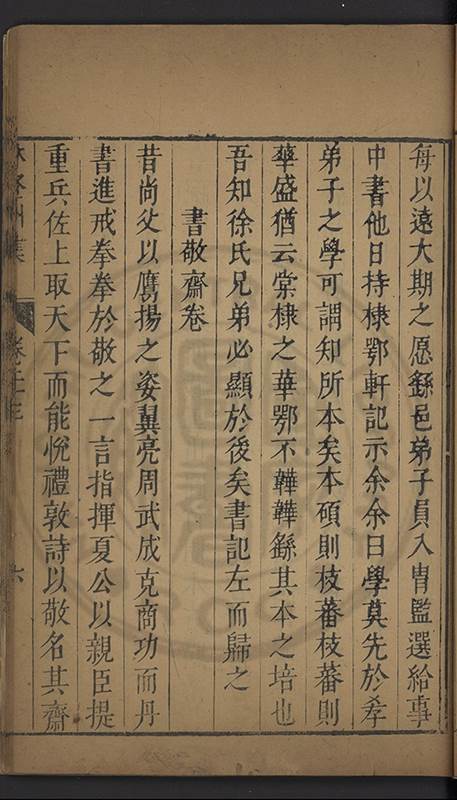 每以遠大期之愿繇邑弟子員入胄監選給事
中書他日持棣鄂軒記示余余曰學莫先於孝
弟子之學可謂知所本矣本碩則枝蕃枝蕃則
華盛猶云棠棣之華鄂不韡韡繇其本之培也
吾知徐氏兄弟必顯於後矣書記左而歸之
書敬齋卷
昔尚父以鷹揚之姿翼亮周武成克商功而丹
書進戒拳拳於敬之一言指揮夏公以親臣提
重兵佐上取天下而能悅禮敦詩以敬名其齋
六